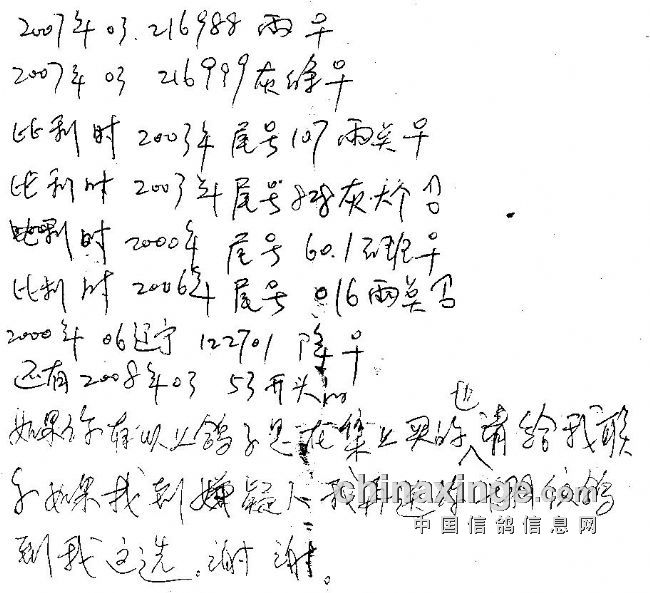 2007年03.216988 雨早
2007年03 216999灰绛早
比利时2003年尾号107雨莫早
比利时2003年尾号 灰大个 公
比利时2000年尾号60.1 斑早
比利时2006年尾号016雨莫公
2000年06辽宁122701 降早
还有2008年03 53开头的
如果你有以上鸽子是在集上买的也请给我联
系如果找到嫌疑人我再送你 信鸽
到我这选.谢谢.
chinaxinge.com
中国信鸽信息网